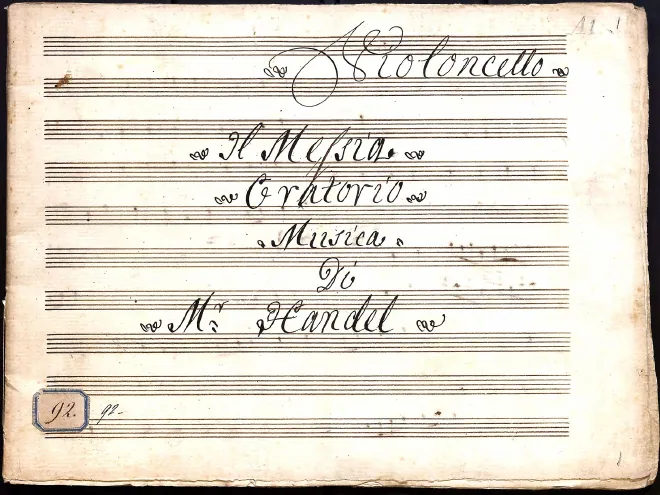 Violoncello
Il Messia
Oratorio
Musica
Di
Mr. Handel
92. 92.